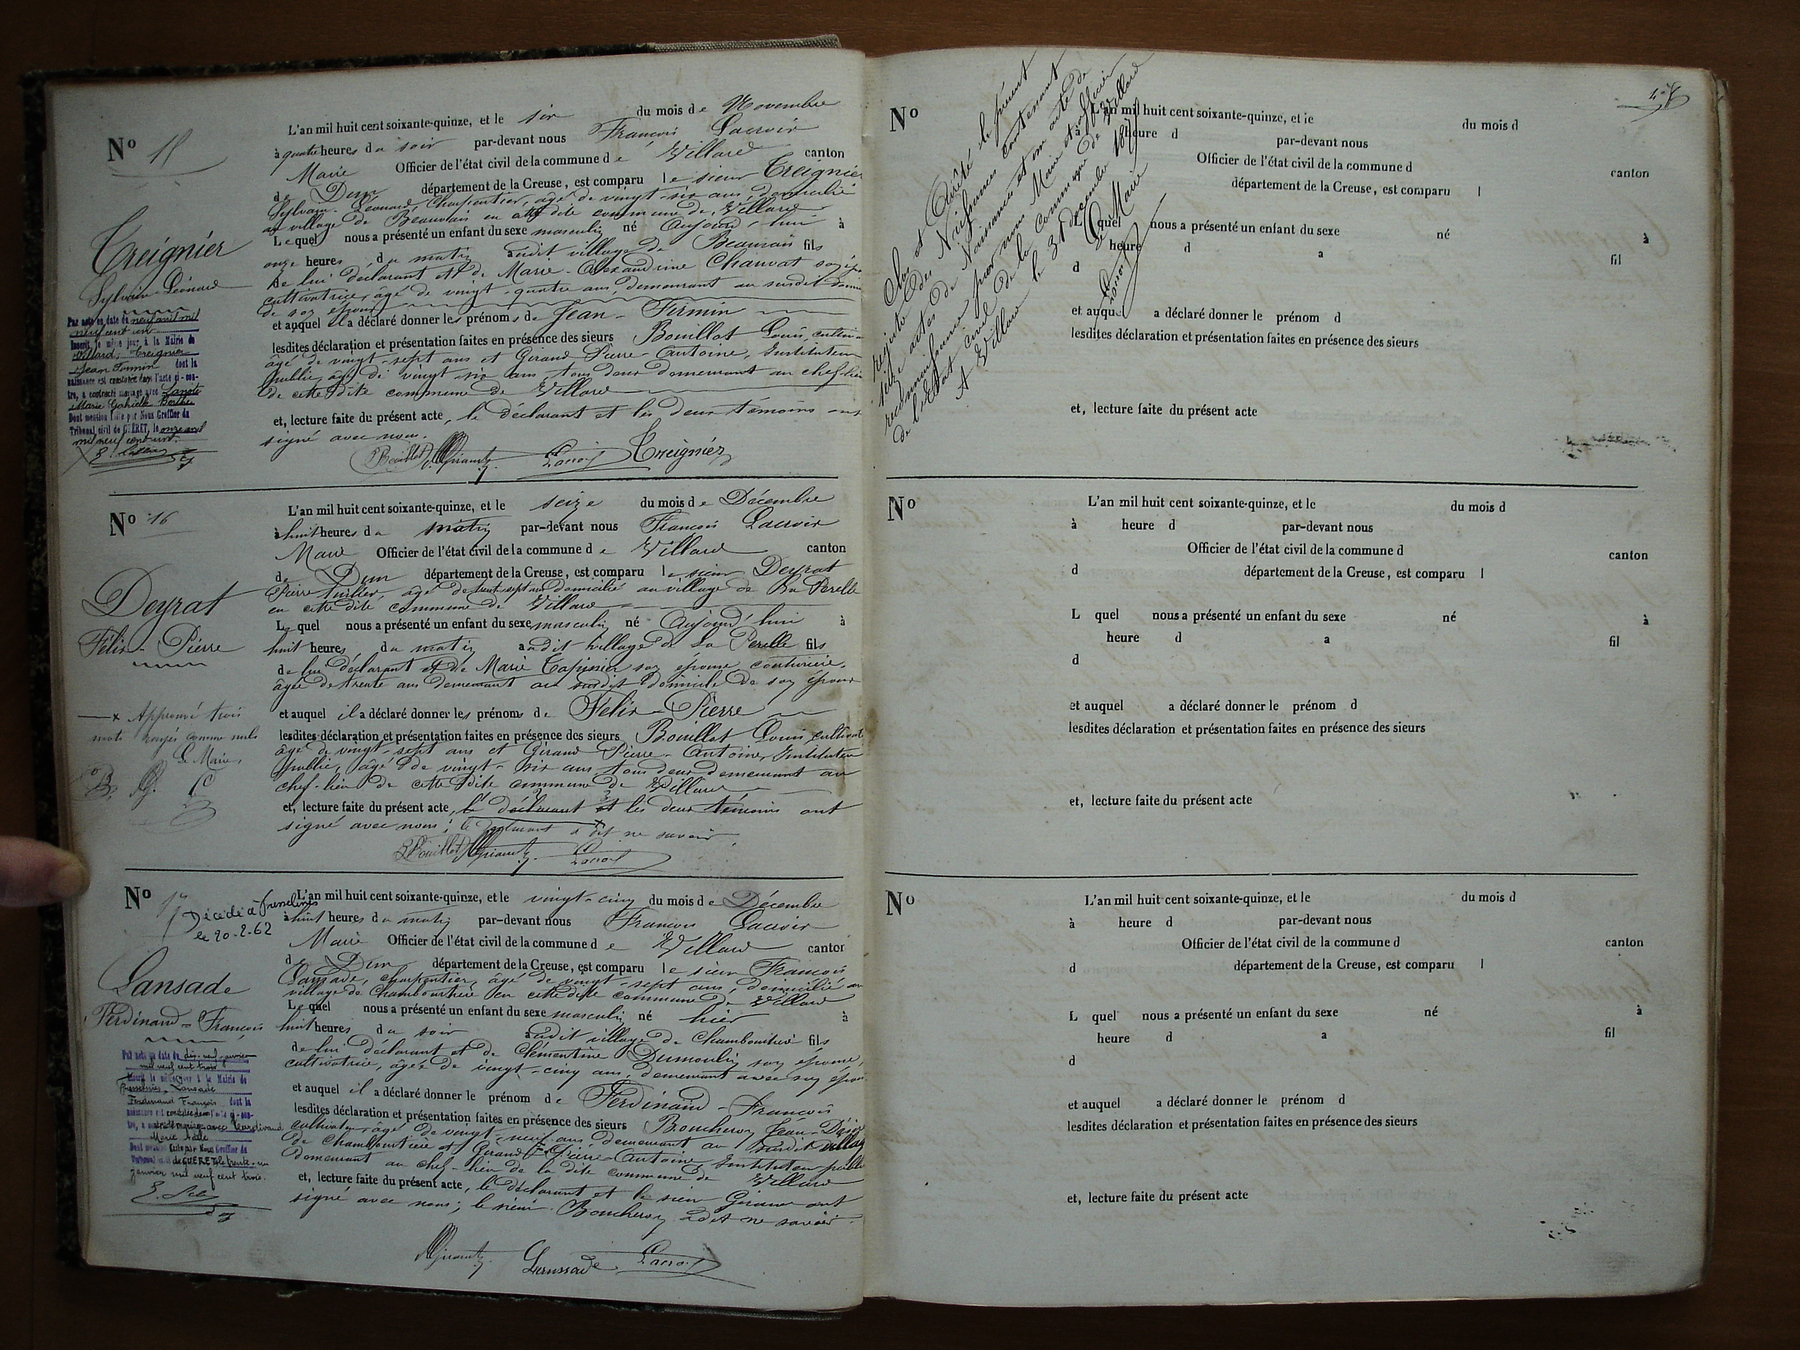 No 15
Creignier
Sylvain-Léonard
Par acte en date du neuf avril mil
neuf cent un
Inscrit le même jour à la Mairie de
Villard, Creignier
Jean Firmin dont la
naissance est constatée dans l'acte ci-con-
tre, a contracté mariage avec
Marie Gabrielle Berthe
Dont mention faite par Nous Greffier du
Tribunal civil de GUÉRET, le onze avril
mil neuf cent un.
L'an mil huit cent soixante-quinze, et le six du mois de Novembre
à quatre heures du soir par-devant nous François Lacroix
Maire Officier de l'état civil de la commune de Villard canton
de Dun département de la Creuse, est comparu le sieur Creignier
Sylvain-Léonard Charpentier, âgé de vingt-six ans domicilié
au village de Beauvais en cette dite commune de Villard
Lequel nous a présenté un enfant du sexe masculin né Aujourd'hui à
onze heures du matin audit village de Beauvais fils
de lui déclarant et de Marie-Alexandrine Chauvat son épouse
cultivatrice, âgé de vingt-quatre ans, demeurant au susdit domicile
de son époux
et auquel il a déclaré donner les prénoms de Jean-Firmin
lesdites déclaration et présentation faites en présence des sieurs Bouillot Louis, cultivateur
âgé de vingt-sept ans et Giraud Pierre-Antoine, Instituteur
public, âgé de vingt-six ans, tous deux demeurant au chef-lieu
de cette dite commune de Villard
et, lecture faite du présent acte, le déclarant et les deux témoins ont
signé avec nous.
LBouillot Giraud Lacroix Creignier
No 16
Deyrat
Félix-Pierre
x Approuvé trois
mots rayés comme nuls
Le Maire,
L'an mil huit cent soixante-quinze, et le seize du mois de Décembre
à huit heures du matin par-devant nous François Lacroix
Maire Officier de l'état civil de la commune de Villard canton
de Dun département de la Creuse, est comparu le sieur Deyrat
Pierre tuilier, âgé de trente sept ans domicilié au village de La Perelle
en cette dite commune de Villard
Lequel nous a présenté un enfant du sexe masculin né Aujourd'hui à
huit heures du matin audit village de La Perelle fils
de lui déclarant et de Marie Tapissier son épouse couturière,
âgée de trente ans demeurant au susdit domicile de son époux
et auquel il a déclaré donner les prénoms de Félix-Pierre
lesdites déclaration et présentation faites en présence des sieurs Bouillot Louis, cultivateur
âgé de vingt-sept ans et Giraud Pierre-Antoine, Instituteur
public, âgé de vingt-six ans tous deux demeurant au
chef-lieu de cette dite commune de Villard
et, lecture faite du présent acte, le déclarant et les deux témoins ont
signé avec nous; le déclarant a dit ne savoir
LBouillot Giraud Lacroix
No 17
Décédé à Fresselines
le 20-2-62
Lansade
Ferdinand-François
Par acte en date du dix-neuf janvier
mil neuf cent trois
Inscrit le même jour à la Mairie de
Fresselines, Lansade
Ferdinand François dont la
naissance est constatée dans l'acte ci-con-
tre, a contracté mariage avec
Marie
Dont mention faite par Nous Greffier du
Tribunal civil de GUÉRET, le trente-un
janvier mil neuf cent trois.
L'an mil huit cent soixante-quinze, et le vingt-cinq du mois de Décembre
à huit heures du matin par-devant nous François Lacroix
Maire Officier de l'état civil de la commune de Villard canton
de Dun département de la Creuse, est comparu le sieur François
Lansade, charpentier, âgé de vingt-sept ans domicilié au
village de Chambourtière en cette dite commune de Villard
Lequel nous a présenté un enfant du sexe masculin né hier à
huit heures du soir audit village de Chambourtière fils
de lui déclarant et de Clémentine Dumoulin son épouse,
cultivatrice, âgée de vingt-cinq ans, demeurant avec son époux
et auquel il a déclaré donner le prénom de Ferdinand-François
lesdites déclaration et présentation faites en présence des sieurs Boucheron Jean-
cultivateur âgé de vingt-neuf ans demeurant au susdit village
de Chambourtière et Giraud Pierre-Antoine Instituteur public
demeurant au chef-lieu de la dite commune de Villard
et, lecture faite du présent acte, le déclarant et le sieur Giraud ont
signé avec nous; le sieur Boucheron a dit ne savoir.
Giraud Lansade Lacroix
Clos et Arrêté le présent
registre des Naissances contenant
actes de Naissances et un acte de
reconnaissance par nous Maire et officier
de l'état civil de la commune de Villard
A Villard le 31 décembre 1875
Le Maire
Lacroix
No
L'an mil huit cent soixante-quinze, et le du mois d
heure d par-devant nous
Officier de l'état civil de la commune d canton
département de la Creuse, est comparu l
L quel nous a présenté un enfant du sexe né à
heure d a fil
d
et auquel a déclaré donner le prénom d
lesdites déclaration et présentation faites en présence des sieurs
et, lecture faite du présent acte
No
L'an mil huit cent soixante-quinze, et le du mois d
à heure d par-devant nous
Officier de l'état civil de la commune d canton
d département de la Creuse, est comparu l
L quel nous a présenté un enfant du sexe né à
heure d a fil
d
et auquel a déclaré donner le prénom d
lesdites déclaration et présentation faites en présence des sieurs
et, lecture faite du présent acte
No
L'an mil huit cent soixante-quinze, et le du mois d
à heure d par-devant nous
Officier de l'état civil de la commune d canton
d département de la Creuse, est comparu l
L quel nous a présenté un enfant du sexe né à
heure d a fil
d
et auquel a déclaré donner le prénom d
lesdites déclaration et présentation faites en présence des sieurs
et, lecture faite du présent acte